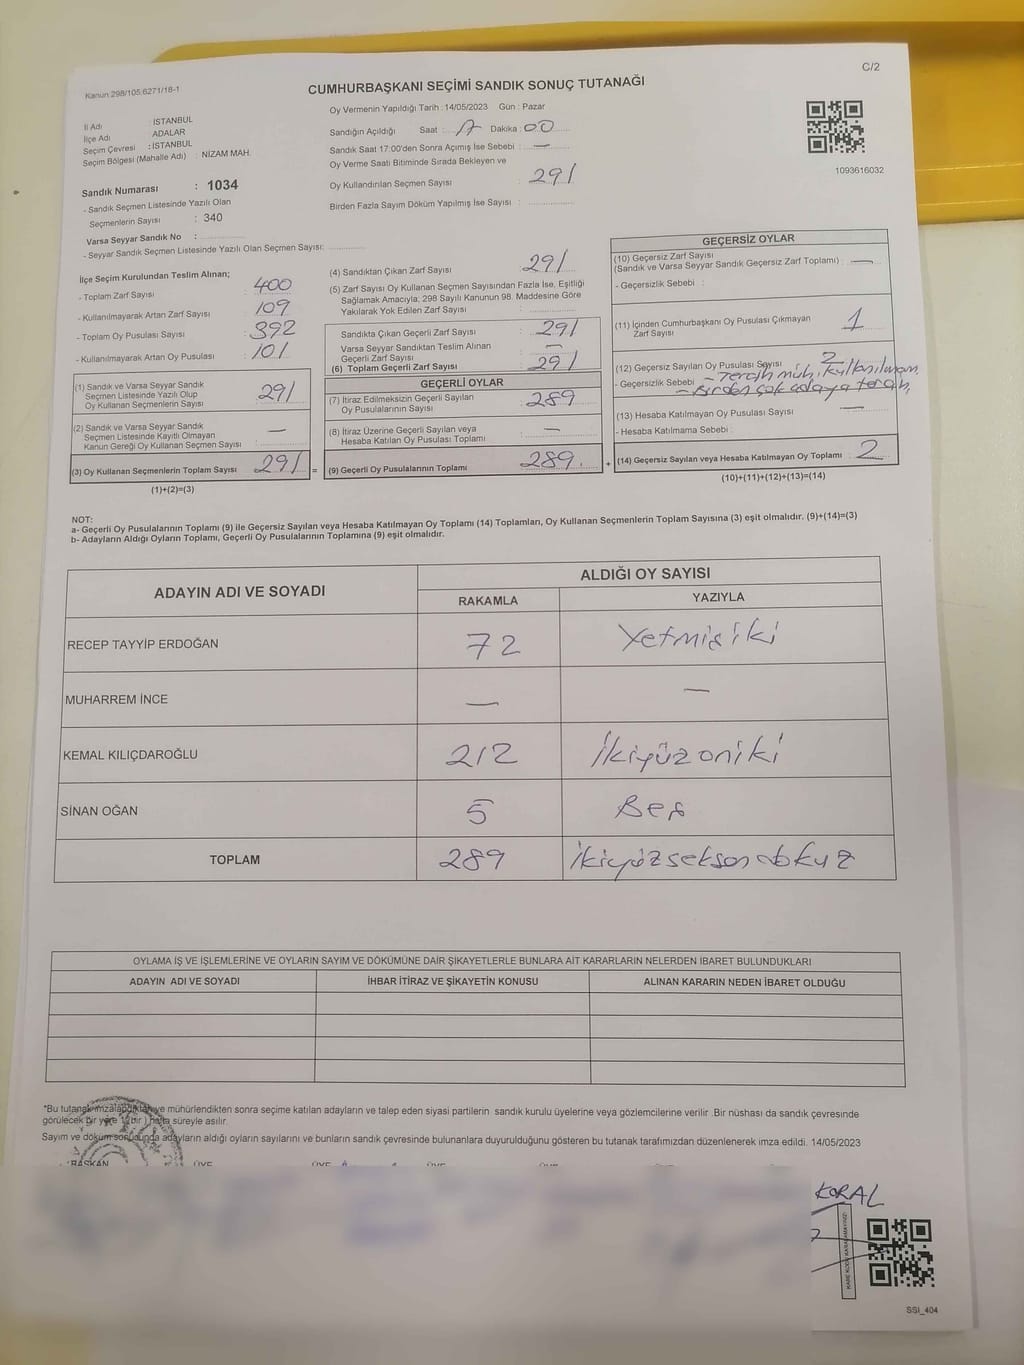 C/2
Kanun 298/105;6271/18-1
CUMHURBAŞKANI SEÇİMİ SANDIK SONUÇ TUTANAĞI
Oy Vermenin Yapıldığı Tarih : 14/05/2023 Gün : Pazar
İl Adı : İSTANBUL
İlçe Adı : ADALAR
Seçim Çevresi : İSTANBUL
Seçim Bölgesi (Mahalle Adı) : NİZAM MAH.
Sandık Numarası : 1034
- Sandık Seçmen Listesinde Yazılı Olan
Seçmenlerin Sayısı : 340
Varsa Seyyar Sandık No :
- Seyyar Sandık Seçmen Listesinde Yazılı Olan Seçmen Sayısı:
Sandığın Açıldığı Saat : 17 Dakika : 00
Sandık Saat 17:00'den Sonra Açılmış İse Sebebi : —
Oy Verme Saati Bitiminde Sırada Bekleyen ve
Oy Kullandırılan Seçmen Sayısı : 291
Birden Fazla Sayım Döküm Yapılmış İse Sayısı :
1093616032
İlçe Seçim Kurulundan Teslim Alınan;
- Toplam Zarf Sayısı : 400
- Kullanılmayarak Artan Zarf Sayısı : 109
- Toplam Oy Pusulası Sayısı : 392
- Kullanılmayarak Artan Oy Pusulası : 101
(1) Sandık ve Varsa Seyyar Sandık
Seçmen Listesinde Yazılı Olup
Oy Kullanan Seçmenlerin Sayısı : 291
(2) Sandık ve Varsa Seyyar Sandık
Seçmen Listesinde Kayıtlı Olmayan
Kanun Gereği Oy Kullanan Seçmen Sayısı : —
(3) Oy Kullanan Seçmenlerin Toplam Sayısı : 291 =
(1)+(2)=(3)
(4) Sandıktan Çıkan Zarf Sayısı : 291
(5) Zarf Sayısı Oy Kullanan Seçmen Sayısından Fazla İse, Eşitliği
Sağlamak Amacıyla; 298 Sayılı Kanunun 98. Maddesine Göre
Yakılarak Yok Edilen Zarf Sayısı :
Sandıkta Çıkan Geçerli Zarf Sayısı : 291
Varsa Seyyar Sandıktan Teslim Alınan
Geçerli Zarf Sayısı : —
(6) Toplam Geçerli Zarf Sayısı : 291
GEÇERLİ OYLAR
(7) İtiraz Edilmeksizin Geçerli Sayılan
Oy Pusulalarının Sayısı : 289
(8) İtiraz Üzerine Geçerli Sayılan veya
Hesaba Katılan Oy Pusulası Toplamı : —
(9) Geçerli Oy Pusulalarının Toplamı : 289 +
GEÇERSİZ OYLAR
(10) Geçersiz Zarf Sayısı
(Sandık ve Varsa Seyyar Sandık Geçersiz Zarf Toplamı) : —
- Geçersizlik Sebebi :
(11) İçinden Cumhurbaşkanı Oy Pusulası Çıkmayan
Zarf Sayısı : 1
(12) Geçersiz Sayılan Oy Pusulası Sayısı : 2
- Geçersizlik Sebebi : - Tercih müh. kullanılmam.
- Birden çok adaya tercih,
(13) Hesaba Katılmayan Oy Pusulası Sayısı : —
- Hesaba Katılmama Sebebi :
(14) Geçersiz Sayılan veya Hesaba Katılmayan Oy Toplamı : 2
(10)+(11)+(12)+(13)=(14)
NOT:
a- Geçerli Oy Pusulalarının Toplamı (9) ile Geçersiz Sayılan veya Hesaba Katılmayan Oy Toplamı (14) Toplamları, Oy Kullanan Seçmenlerin Toplam Sayısına (3) eşit olmalıdır. (9)+(14)=(3)
b- Adayların Aldığı Oyların Toplamı, Geçerli Oy Pusulalarının Toplamına (9) eşit olmalıdır.
ADAYIN ADI VE SOYADI ALDIĞI OY SAYISI
RAKAMLA YAZIYLA
RECEP TAYYİP ERDOĞAN 72 Yetmişiki
MUHARREM İNCE — —
KEMAL KILIÇDAROĞLU 212 İkiyüzoniki
SİNAN OĞAN 5 Beş
TOPLAM 289 İkiyüzseksendokuz
OYLAMA İŞ VE İŞLEMLERİNE VE OYLARIN SAYIM VE DÖKÜMÜNE DAİR ŞİKAYETLERLE BUNLARA AİT KARARLARIN NELERDEN İBARET BULUNDUKLARI
ADAYIN ADI VE SOYADI İHBAR İTİRAZ VE ŞİKAYETİN KONUSU ALINAN KARARIN NEDEN İBARET OLDUĞU
*Bu tutanak imzalandıktan ve mühürlendikten sonra seçime katılan adayların ve talep eden siyasi partilerin sandık kurulu üyelerine veya gözlemcilerine verilir .Bir nüshası da sandık çevresinde
görülecek bir yere 1(bir ) hafta süreyle asılır.
Sayım ve döküm sonucunda adayların aldığı oyların sayılarını ve bunların sandık çevresinde bulunanlara duyurulduğunu gösteren bu tutanak tarafımızdan düzenlenerek imza edildi. 14/05/2023
BAŞKAN ÜYE ÜYE ÜYE
KORAL
SSİ_404